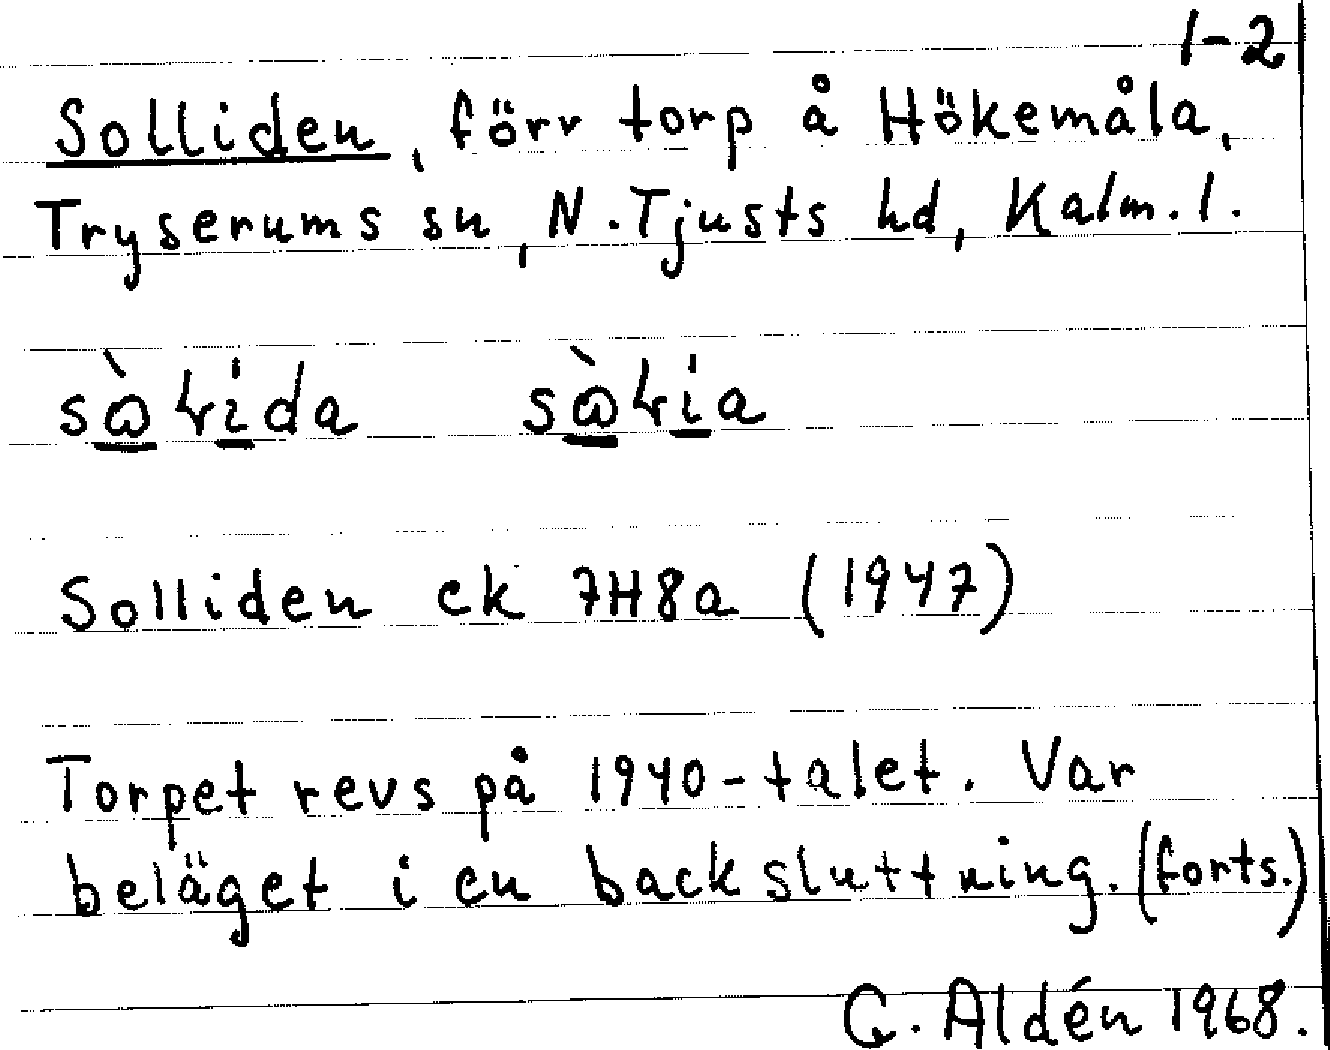 1-2
Solliden, förr torp å Hökemåla,
Tryserums sn, N. Tjusts hd, Kalm. l.
Solliden ek 7H8a (1947)
Torpet revs på 1940-talet. Var
beläget i en backsluttning. (forts.)
G. Aldén 1968.